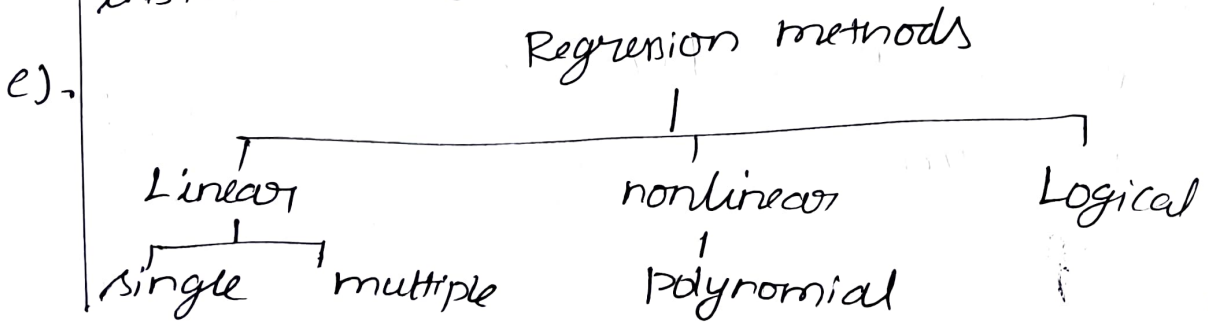 Regression methods
e).
Linear nonlinear Logical
single multiple polynomial